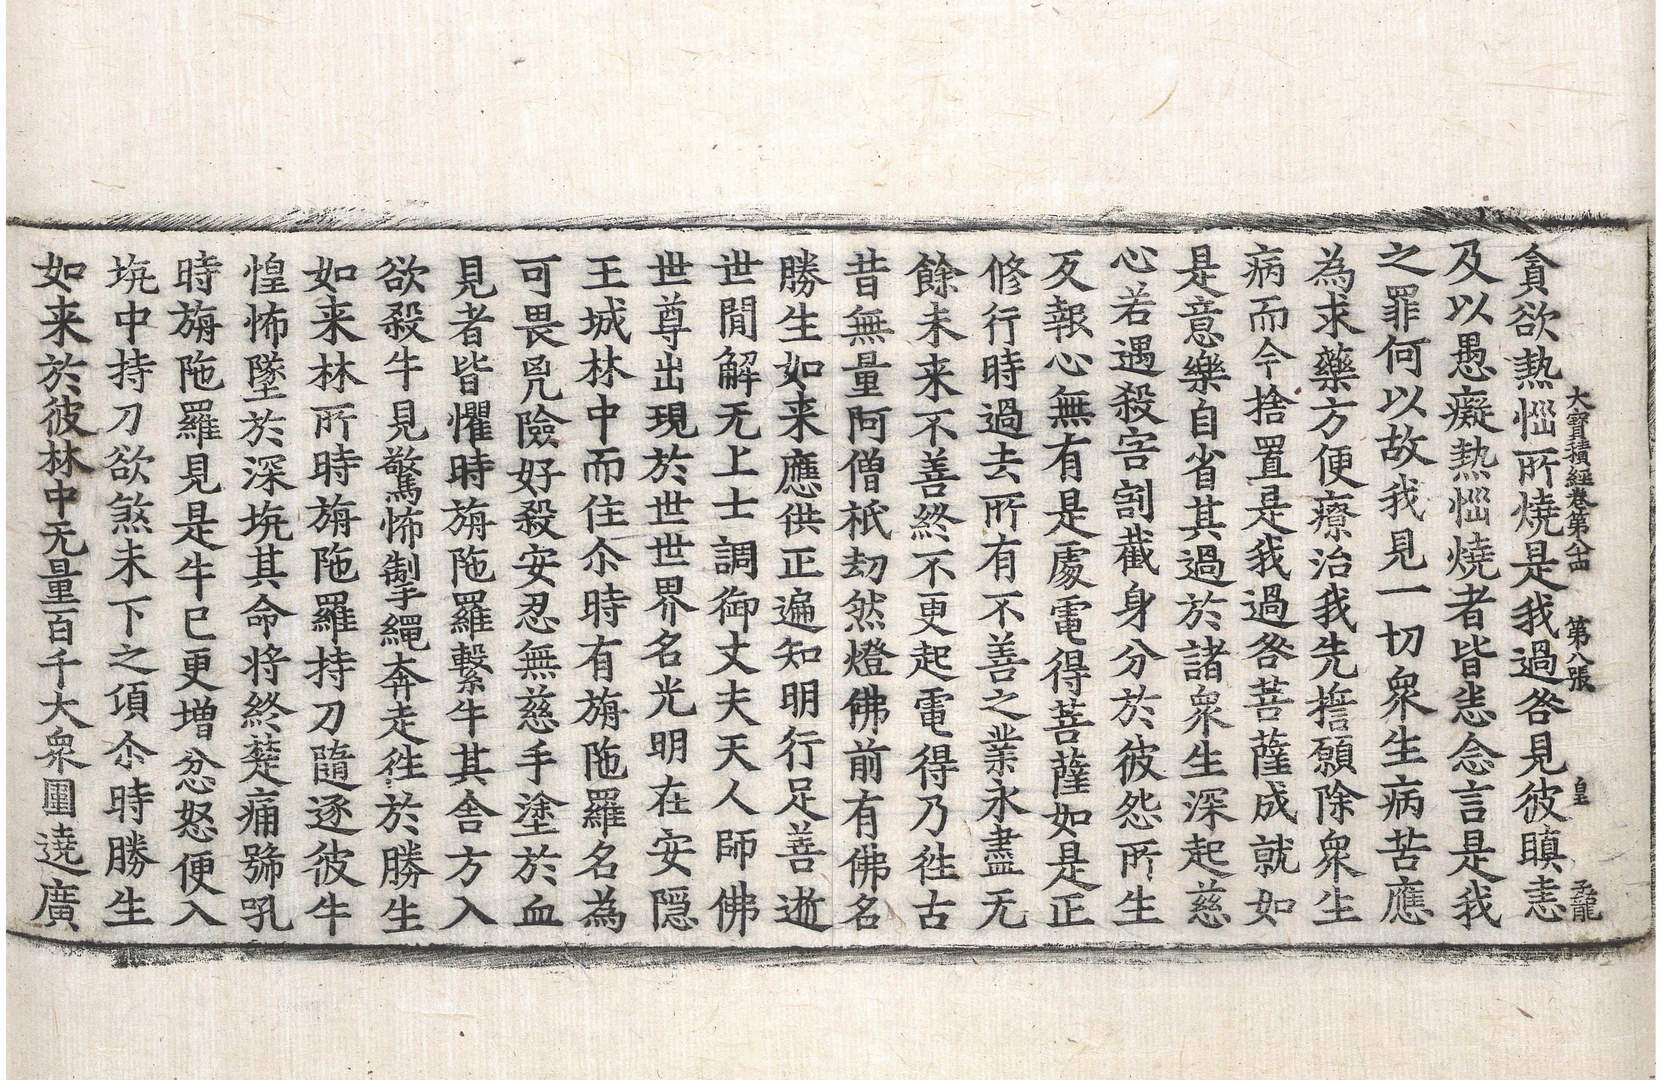 大寶積經卷第八十四 第八張 皇 孟龍
貪欲熱惱所燒是我過咎見彼瞋恚
及以愚癡熱惱燒者皆恚念言是我
之罪何以故我見一切衆生病苦應
為求藥方便療治我先摭願除衆生
病而今捨置是我過咎菩薩成就如
是意樂自省其過於諸衆生深起慈
心若遇殺害割截身分於彼怨所生
反報心無有是處電得菩薩如是正
修行時過去所有不善之業永盡无
餘未来不善終不更起電得乃徃古
昔無量阿僧祇劫然燈佛前有佛名
勝生如来應供正遍知明行足善逝
世閒解无上士調御丈夫天人師佛
世尊出現於世世界名光明在安隠
王城林中而住尒時有旃陁羅名為
可畏兇險好殺安忍無慈手塗於血
見者皆懼時旃陁羅繫牛其舍方入
欲殺牛見驚怖掣繩奔走徃於勝生
如来林所時旃陁羅持刀隨逐彼牛
惶怖墜於深坑其命将終楚痛號吼
時旃陁羅見是牛已更增忿怒便入
坑中持刀欲煞未下之頃尒時勝生
如来於彼林中无量百千大衆圍遶廣